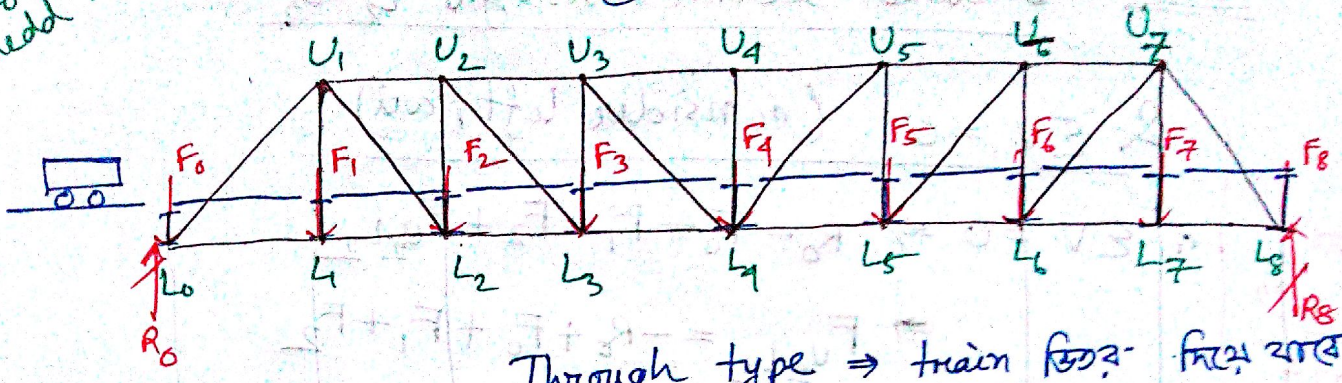 edd
U1 U2 U3 U4 U5 U6 U7
F0 F1 F2 F3 F4 F5 F6 F7 F8
L0 L1 L2 L3 L4 L5 L6 L7 L8
R0 R8
Through type ⇒ train ভিতর দিয়ে যাবে